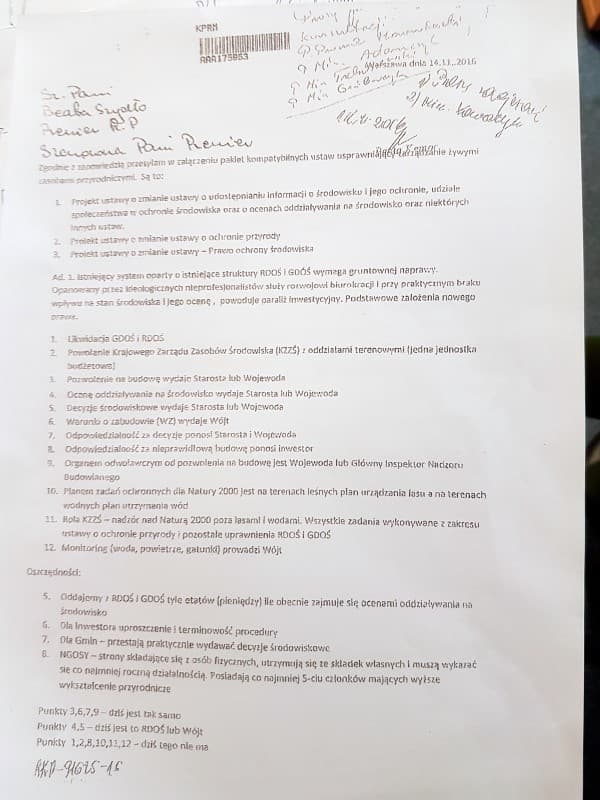 KPRM
AAA175953
Warszawa dnia 14.11.2016
Sz. Pani
Beata Szydło
Premier R.P
Szanowna Pani Premier
Zgodnie z zapowiedzią przesyłam w załączeniu pakiet kompatybilnych ustaw usprawniający zarządzanie żywymi
zasobami przyrodniczymi. Są to:
1. Projekt ustawy o zmianie ustawy o udostępnianiu informacji o środowisku i jego ochronie, udziale
społeczeństwa w ochronie środowiska oraz o ocenach oddziaływania na środowisko oraz niektórych
innych ustaw.
2. Projekt ustawy o zmianie ustawy o ochronie przyrody
3. Projekt ustawy o zmianie ustawy – Prawo ochrony środowiska
Ad. 1. Istniejący system oparty o istniejące struktury RDOŚ i GDOŚ wymaga gruntownej naprawy.
Opanowany przez ideologicznych nieprofesjonalistów służy rozwojowi biurokracji i przy praktycznym braku
wpływu na stan środowiska i jego ocenę , powoduje paraliż inwestycyjny. Podstawowe założenia nowego
prawa.
1. Likwidacja GDOŚ i RDOŚ
2. Powołanie Krajowego Zarządu Zasobów Środowiska (KZZŚ) z oddziałami terenowymi (jedna jednostka
budżetowa)
3. Pozwolenie na budowę wydaje Starosta lub Wojewoda
4. Ocenę oddziaływania na środowisko wydaje Starosta lub Wojewoda
5. Decyzje środowiskowe wydaje Starosta lub Wojewoda
6. Warunki o zabudowie (WZ) wydaje Wójt
7. Odpowiedzialność za decyzje ponosi Starosta i Wojewoda
8. Odpowiedzialność za nieprawidłową budowę ponosi inwestor
9. Organem odwoławczym od pozwolenia na budowę jest Wojewoda lub Główny Inspektor Nadzoru
Budowlanego
10. Planem zadań ochronnych dla Natury 2000 jest na terenach leśnych plan urządzania lasu a na terenach
wodnych plan utrzymania wód
11. Rola KZZŚ – nadzór nad Naturą 2000 poza lasami i wodami. Wszystkie zadania wykonywane z zakresu
ustawy o ochronie przyrody i pozostałe uprawnienia RDOŚ i GDOŚ
12. Monitoring (woda, powietrze, gatunki) prowadzi Wójt
Oszczędności:
5. Oddajemy z RDOŚ i GDOŚ tyle etatów (pieniędzy) ile obecnie zajmuje się ocenami oddziaływania na
środowisko
6. Dla inwestora uproszczenie i terminowość procedury
7. Dla Gmin – przestają praktycznie wydawać decyzje środowiskowe
8. NGOSY – strony składające się z osób fizycznych, utrzymują się ze składek własnych i muszą wykazać
się co najmniej roczną działalnością. Posiadają co najmniej 5-ciu członków mających wyższe
wykształcenie przyrodnicze
Punkty 3,6,7,9 – dziś jest tak samo
Punkty 4,5 – dziś jest to RDOŚ lub Wójt
Punkty 1,2,8,10,11,12 – dziś tego nie ma